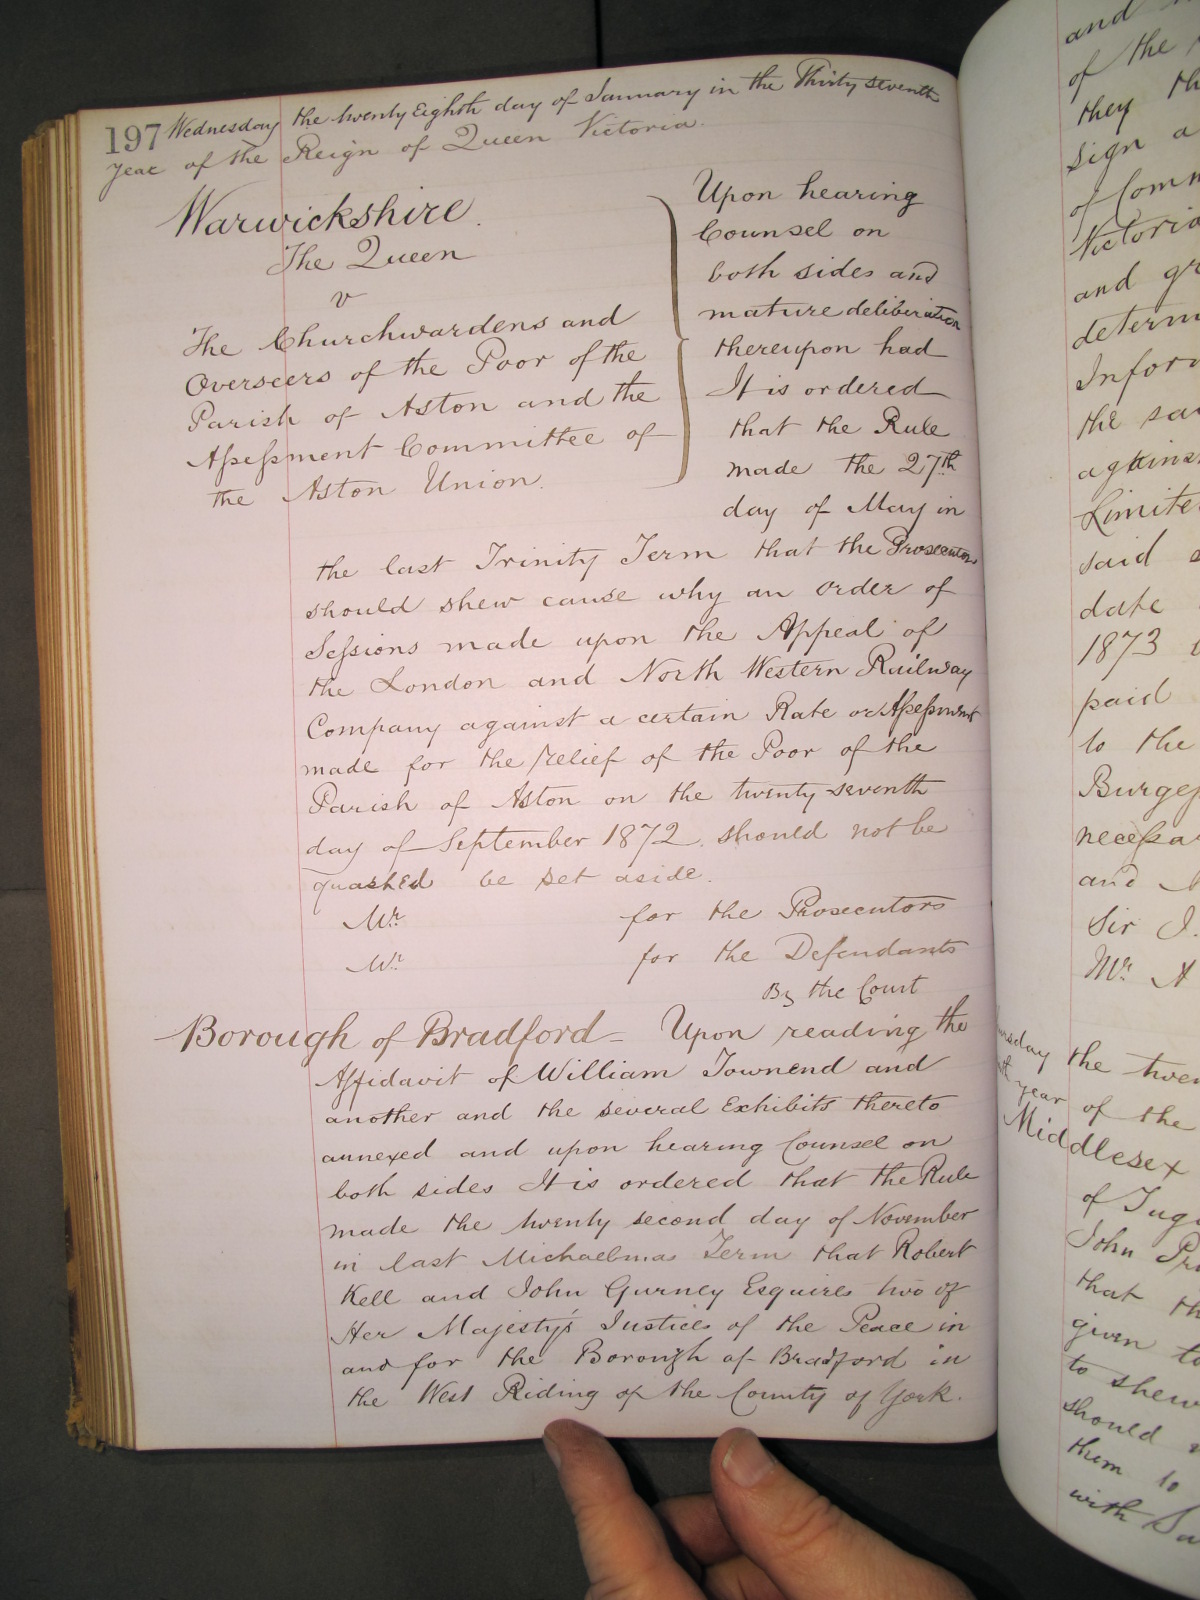 197 Wednesday the twenty Eighth day of January in the Thirty seventh
year of the Reign of Queen Victoria.
Warwickshire.
The Queen
v
The Churchwardens and
Overseers of the Poor of the
Parish of Aston and the
Assessment Committee of
the Aston Union.
Upon hearing
Counsel on
both sides and
mature deliberation
thereupon had
It is ordered
that the Rule
made the 27th
day of May in
the last Trinity Term that the Prosecutors
should shew cause why an order of
Sessions made upon the Appeal of
the London and North Western Railway
Company against a certain Rate or Assessment
made for the relief of the Poor of the
Parish of Aston on the twenty seventh
day of September 1872. should not be
quashed be set aside.
Mr. for the Prosecutors
Mr. for the Defendants
By the Court
Borough of Bradford = Upon reading the
Affidavit of William Townend and
another and the several Exhibits thereto
annexed and upon hearing Counsel on
both sides It is ordered that the Rule
made the twenty second day of November
in last Michaelmas Term that Robert
Kell and John Gurney Esquires two of
Her Majesty's Justices of the Peace in
and for the Borough of Bradford in
the West Riding of the County of York.
and
of the
they th
sign a
of Comm
Victoria
and gr
determ
Infor
the sa
against
Limite
said
date
1873
paid
to the
Burges
necessa
and
Sir J.
Mr. A
the twen
year of the
Middlesex
of Jug
John Pr
that th
given to
to shew
should
them to
with Sa